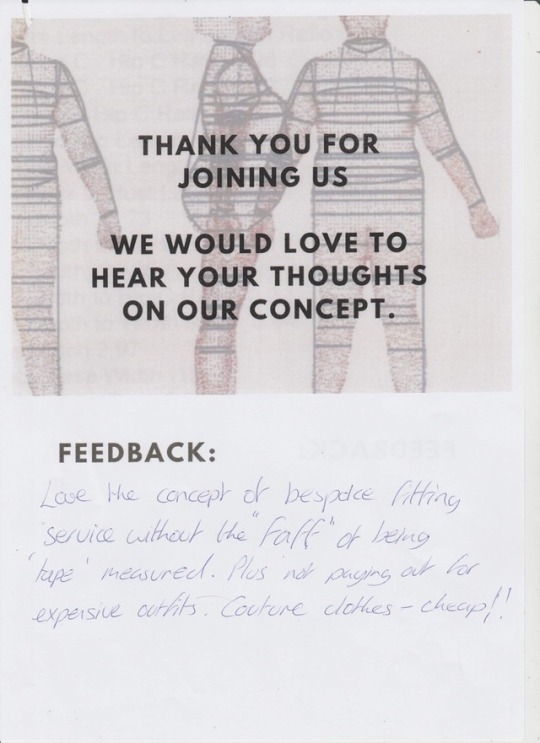 THANK YOU FOR
JOINING US
WE WOULD LOVE TO
HEAR YOUR THOUGHTS
ON OUR CONCEPT.
FEEDBACK:
Love the concept of bespoke fitting
service without the "Faff" of being
'tape' measured. Plus not paying out for
expensive outfits. Couture clothes - cheap!!